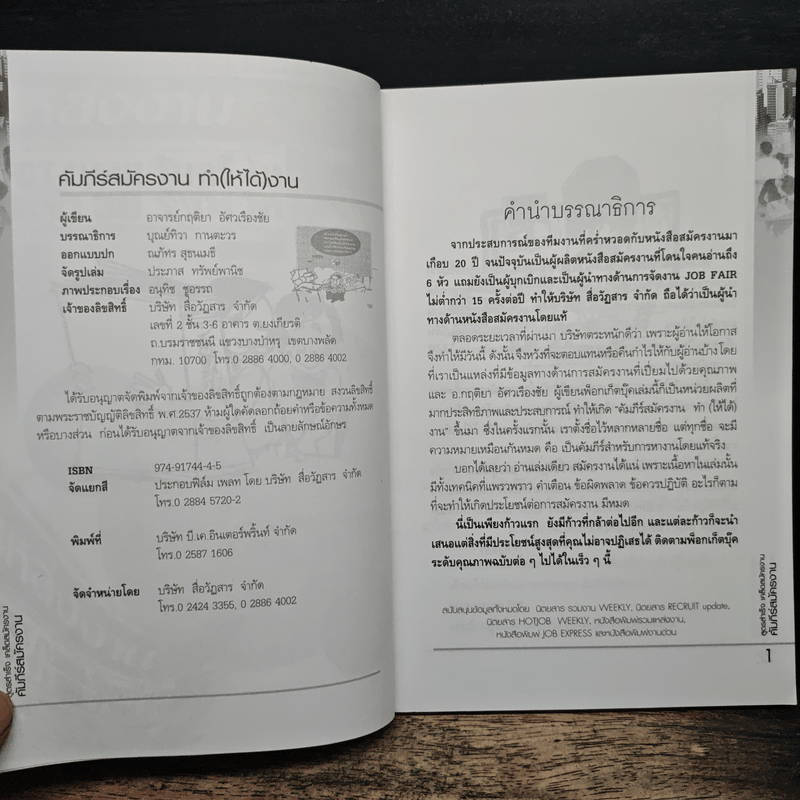 คัมภีร์สมัครงาน ทำ(ให้ได้)งาน
ผู้เขียน อาจารย์กฤติยา อัศวเรืองชัย
บรรณาธิการ บุณย์ทิวา กานตะวร
ออกแบบปก ณภัทร สุธนเมธี
จัดรูปเล่ม ประภาส ทรัพย์พานิช
ภาพประกอบเรื่อง อนุทิช ชูอรรถ
เจ้าของลิขสิทธิ์ บริษัท สื่อวัฏสาร จำกัด
เลขที่ 2 ชั้น 3-6 อาคาร ต.ยงเกียรติ
ถ.บรมราชชนนี แขวงบางบำหรุ เขตบางพลัด
กทม. 10700 โทร.0 2886 4000, 0 2886 4002
ได้รับอนุญาตจัดพิมพ์จากเจ้าของลิขสิทธิ์ถูกต้องตามกฎหมาย สงวนลิขสิทธิ์
ตามพระราชบัญญัติลิขสิทธิ์ พ.ศ.2537 ห้ามผู้ใดคัดลอกถ้อยคำหรือข้อความทั้งหมด
หรือบางส่วน ก่อนได้รับอนุญาตจากเจ้าของลิขสิทธิ์ เป็นลายลักษณ์อักษร
ISBN 974-91744-4-5
จัดแยกสี ประกอบฟิล์ม เพลท โดย บริษัท สื่อวัฏสาร จำกัด
โทร.0 2884 5720-2
พิมพ์ที่ บริษัท บี.เค.อินเตอร์พริ้นท์ จำกัด
โทร.0 2587 1606
จัดจำหน่ายโดย บริษัท สื่อวัฏสาร จำกัด
โทร.0 2424 3355, 0 2886 4002
สูตรสำเร็จ เคล็ดสมัครงาน
คัมภีร์สมัครงาน
คำนำบรรณาธิการ
จากประสบการณ์ของทีมงานที่คร่ำหวอดกับหนังสือสมัครงานมา
เกือบ 20 ปี จนปัจจุบันเป็นผู้ผลิตหนังสือสมัครงานที่โดนใจคนอ่านถึง
6 หัว แถมยังเป็นผู้บุกเบิกและเป็นผู้นำทางด้านการจัดงาน JOB FAIR
ไม่ต่ำกว่า 15 ครั้งต่อปี ทำให้บริษัท สื่อวัฏสาร จำกัด ถือได้ว่าเป็นผู้นำ
ทางด้านหนังสือสมัครงานโดยแท้
ตลอดระยะเวลาที่ผ่านมา บริษัทตระหนักดีว่า เพราะผู้อ่านให้โอกาส
จึงทำให้มีวันนี้ ดังนั้น จึงหวังที่จะตอบแทนหรือคืนกำไรให้กับผู้อ่านบ้าง โดย
ที่เราเป็นแหล่งที่มีข้อมูลทางด้านการสมัครงานที่เปี่ยมไปด้วยคุณภาพ
และ อ.กฤติยา อัศวเรืองชัย ผู้เขียนพ็อกเก็ตบุ๊คเล่มนี้ก็เป็นหน่วยผลิตที่
มากประสิทธิภาพและประสบการณ์ ทำให้เกิด “คัมภีร์สมัครงาน ทำ (ให้ได้)
งาน” ขึ้นมา ซึ่งในครั้งแรกนั้น เราตั้งชื่อไว้หลากหลายชื่อ แต่ทุกชื่อ จะมี
ความหมายเหมือนกันหมด คือ เป็นคัมภีร์สำหรับการหางานโดยแท้จริง
บอกได้เลยว่า อ่านเล่มเดียว สมัครงานได้แน่ เพราะเนื้อหาในเล่มนั้น
มีทั้งเทคนิคที่แพรวพราว คำเตือน ข้อผิดพลาด ข้อควรปฏิบัติ อะไรก็ตาม
ที่จะทำให้เกิดประโยชน์ต่อการสมัครงาน มีหมด
นี่เป็นเพียงก้าวแรก ยังมีก้าวที่กล้าต่อไปอีก และแต่ละก้าวก็จะนำ
เสนอแต่สิ่งที่มีประโยชน์สูงสุดที่คุณไม่อาจปฏิเสธได้ ติดตามพ็อกเก็ตบุ๊ค
ระดับคุณภาพฉบับต่อ ๆ ไปได้ในเร็ว ๆ นี้
สนับสนุนข้อมูลทั้งหมดโดย นิตยสาร รวมงาน WEEKLY, นิตยสาร RECRUIT update,
นิตยสาร HOTJOB WEEKLY, หนังสือพิมพ์รวมแหล่งงาน,
หนังสือพิมพ์ JOB EXPRESS และหนังสือพิมพ์งานด่วน
สูตรสำเร็จ เคล็ดสมัครงาน
คัมภีร์สมัครงาน
1